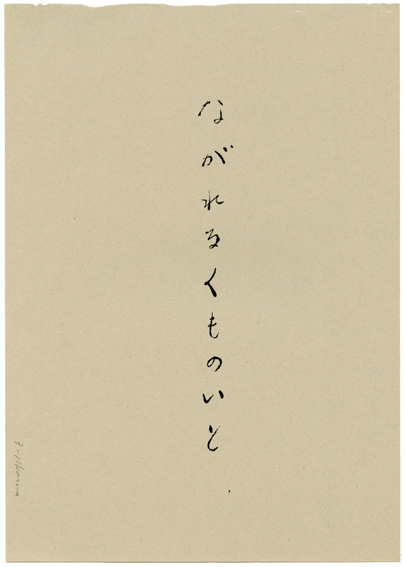 ながれるくものいと